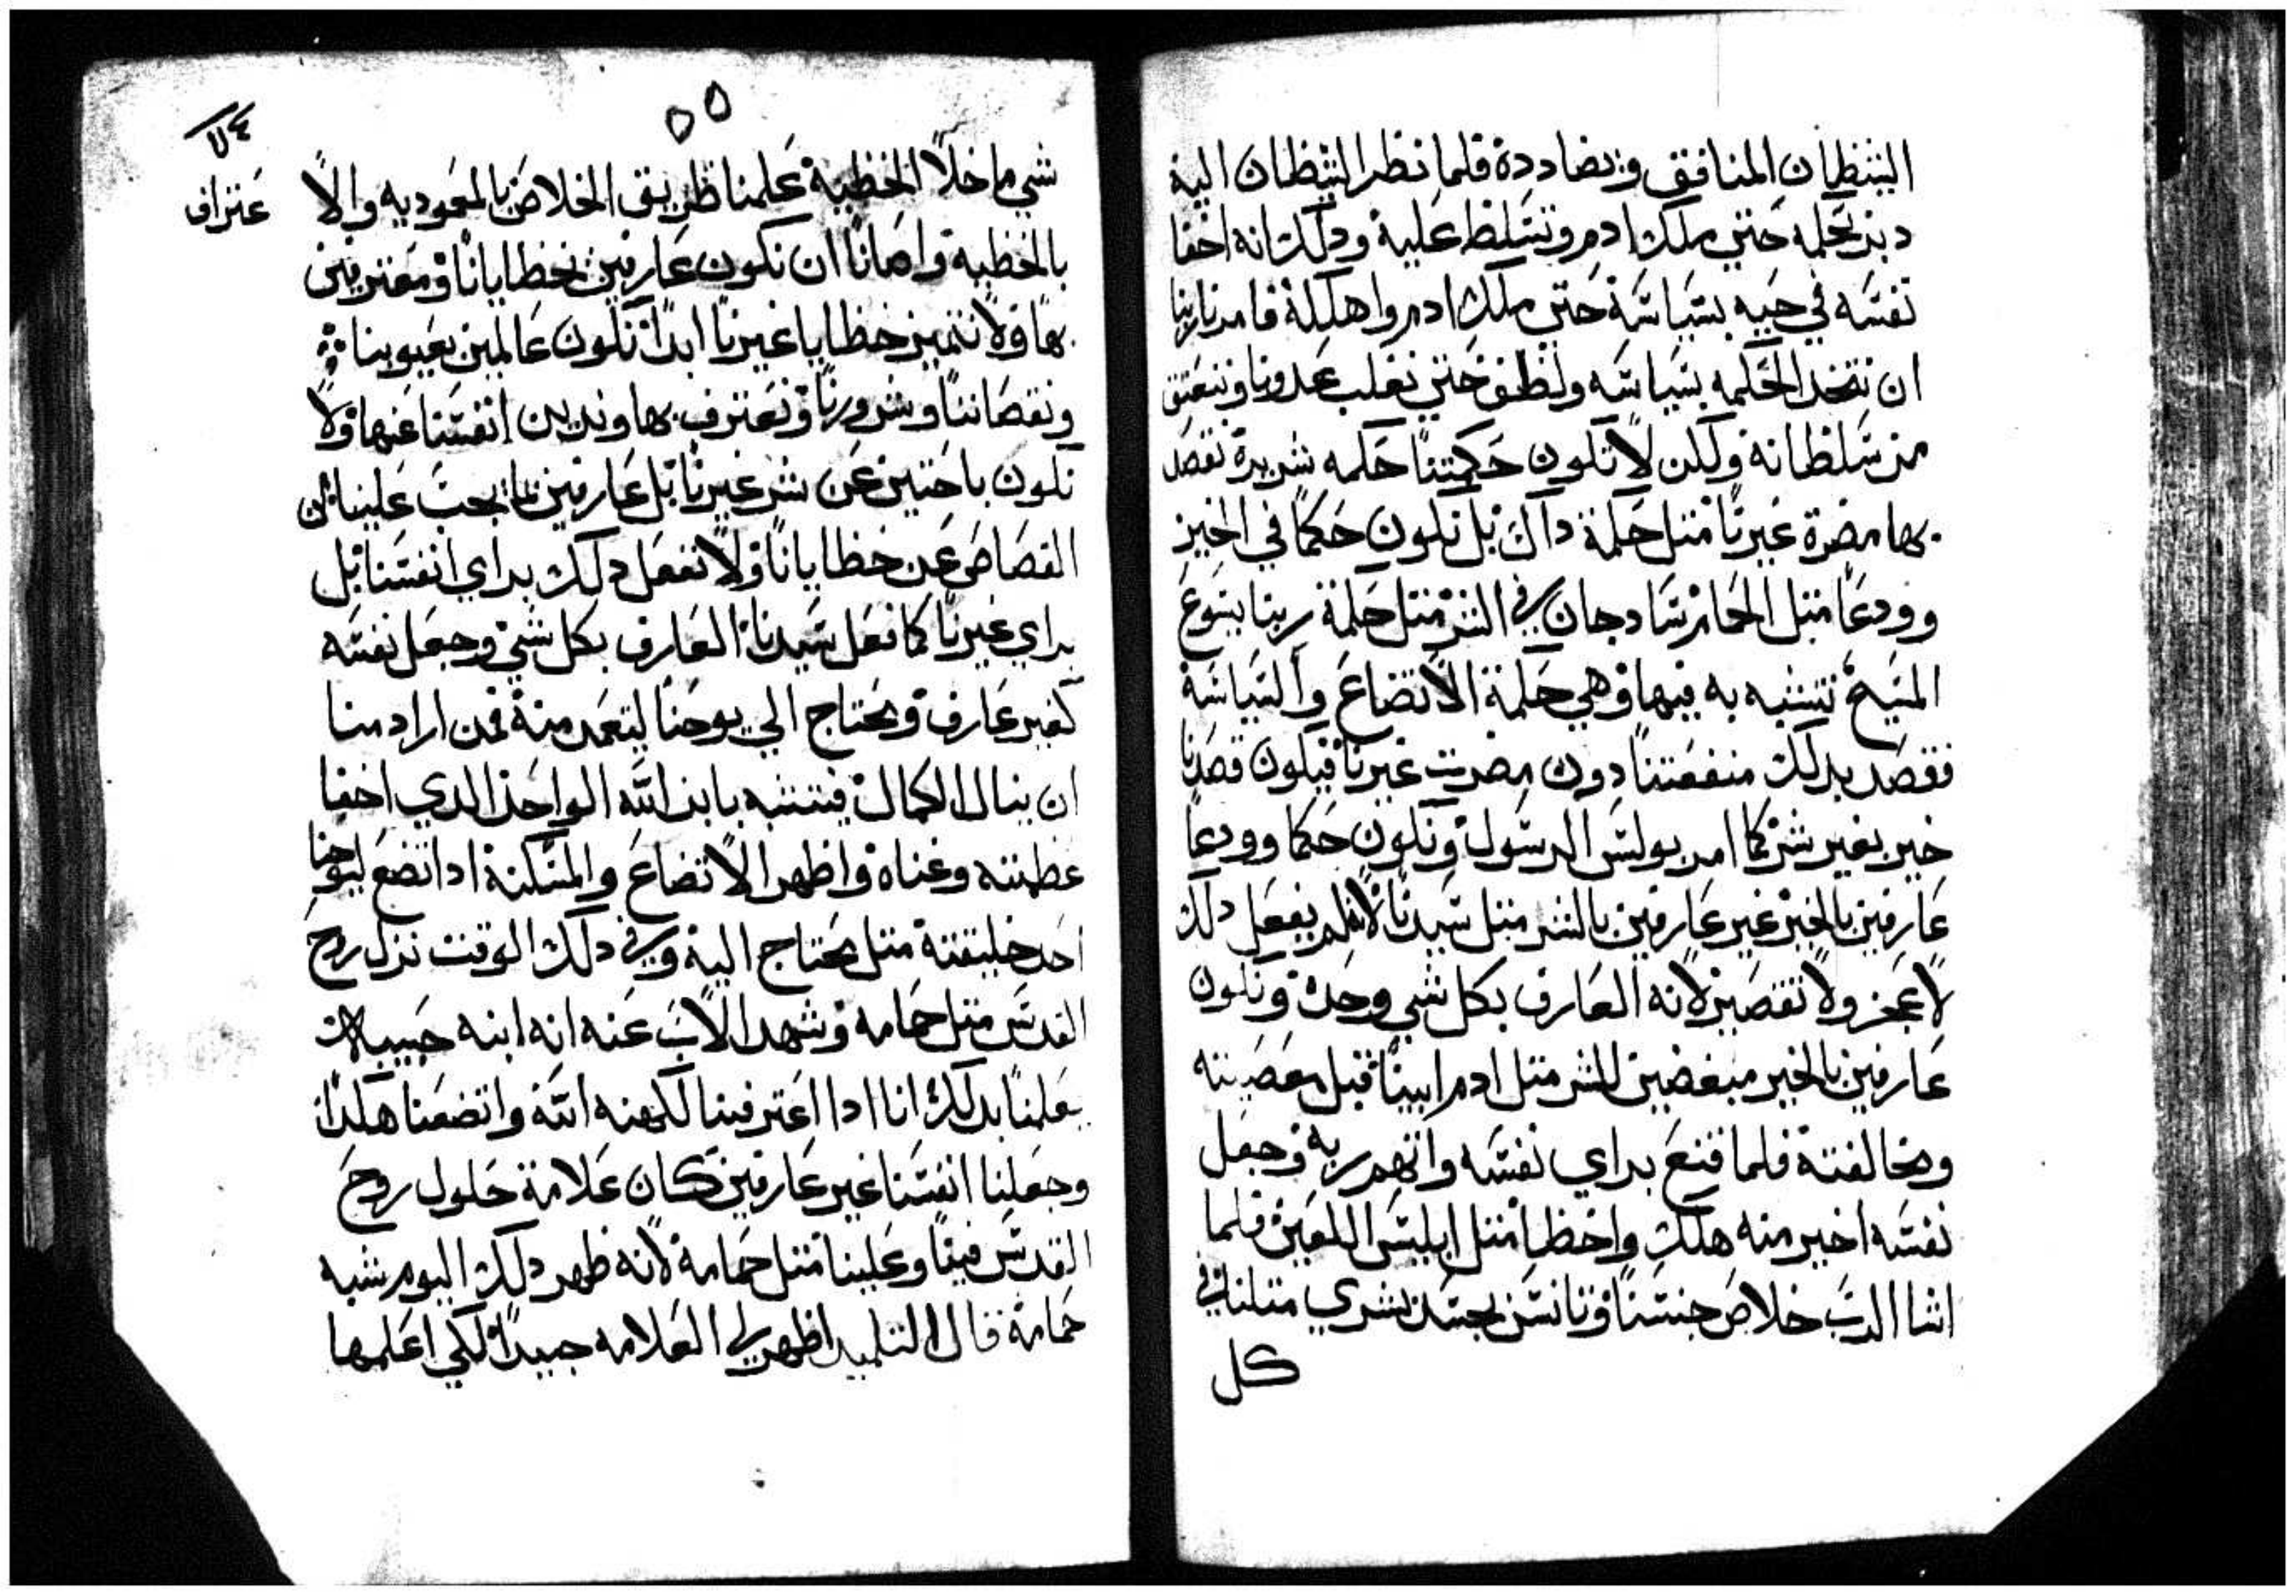 الشيطان المنافق ويضاددة فلما نظر الشيطان الية
دبر بحكمه حتي ملك ادم وتسلط علية ودلك انه اخفا
نفسه في حيه بسياسة حتي ملك ادم واهلكة فامرنا ربنا
ان نتخد الحكمه بسياسه ولطف حتي نغلب عدونا وننعتق
من سلطانة ولكن لا تكون حكمتنا حكمه شريرة نقصد
بها مضرة غيرنا متل حكمة داك بل نكون حكما في الخير
وودعا متل الحمام سادجان في الشر متل حكمة ربنا يسوع
المسيح نتشبه به فيها وهي حكمة الاتضاع والسياسة
فنقصد بدلك منفعتنا دون مضرت غيرنا فيكون قصدنا
خير بغير شر كما امر بولس الرسول ونكون حكما وودعا
عارفين بالخير غير عارفين بالشر متل سيدنا لانه لم يفعل دلك
لا عجز ولا تقصير لانه العارف بكل شي وحدة ونكون
عارفين بالخير مبغضين للشر متل ادم ابينا قبل معصيته
ومخالفتة فلما قنع براي نفسه واتهم ربه وجعل
نفسه اخير منه هلك واخطا متل ابليس اللعين فلما
اشا الرب خلاص جنسنا وتانس بجسد بشري متلنا في
كل
٥٥
شي ما خلا الخطية علمنا طريق الخلاص بالمعموديه والا
عتراف
بالخطية واصانا ان نكون عارفين بخطايانا ومعترفين
بها ولا نتميز خطايا غيرنا ابدا نكون عالمين بعيوبنا
ونقصاننا وشرورنا ونعترف بها وندين انفسنا عنها ولا
نكون باحتين عن شر غيرنا بل عارفين بما يجب علينا من
القصاص عن خطايانا ولا نفعل دلك براي انفسنا بل
براي غيرنا كما فعل سيدنا العارف بكل شي وجعل نفسه
كغير عارف ومحتاج الي يوحنا ليتعمد منة فمن اراد منا
ان ينال الكمال فيتشبه بابن الله الواحد الدي اخفا
عظمته وغناة واظهر الاتضاع والمسكنة اد اتضع ليوحنا
احد خليقتة متل محتاج الية وفي دلك الوقت نزل روح
القدس متل حمامه وشهد الاب عنه انه ابنه حبيبه
يعلمنا بدلك اننا ادا اعترفنا لكهنه الله واتضعنا هكدا
وجعلنا انفسنا غير عارفين كان علامة حلول روح
القدس فينا وعلينا متل حمامة لانه ظهر دلك اليوم شبه
حمامة قال التلميد اظهر لي العلامه جيدا لكي اعلمها